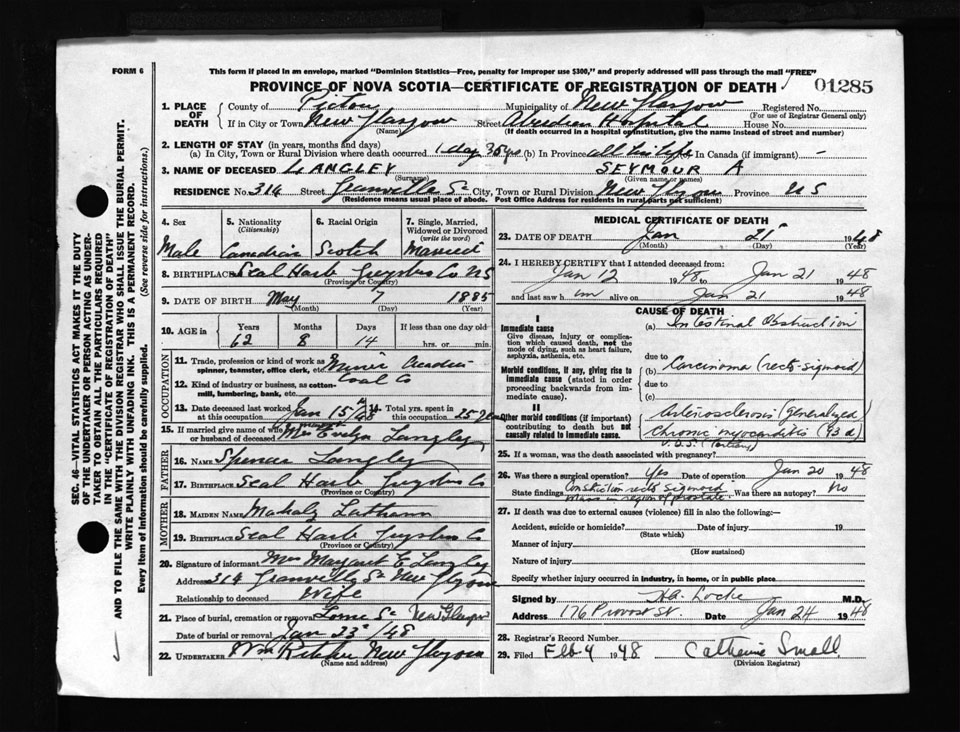 FORM 6
This form if placed in an envelope, marked "Dominion Statistics—Free, penalty for improper use $300," and properly addressed will pass through the mail "FREE"
PROVINCE OF NOVA SCOTIA—CERTIFICATE OF REGISTRATION OF DEATH 01285
1. PLACE OF DEATH County of Pictou Municipality of New Glasgow Registered No.
(For use of Registrar General only)
If in City or Town New Glasgow Street Aberdeen Hospital House No.
(Name) (If death occurred in a hospital or institution, give the name instead of street and number)
2. LENGTH OF STAY (in years, months and days)
(a) In City, Town or Rural Division where death occurred 1 day 36 yrs (b) In Province all his life In Canada (if immigrant) —
3. NAME OF DECEASED LANGLEY SEYMOUR A
(Surname) (Given name or names)
RESIDENCE No. 314 Street Granville St City, Town or Rural Division New Glasgow Province N S
(Residence means usual place of abode. Post Office Address for residents in rural parts not sufficient)
4. Sex Male
5. Nationality (Citizenship) Canadian
6. Racial Origin Scotch
7. Single, Married, Widowed or Divorced (write the word) Married
8. BIRTHPLACE Seal Harb Guysboro Co NS
(Province or Country)
9. DATE OF BIRTH May 7 1885
(Month) (Day) (Year)
10. AGE in Years Months Days If less than one day old
62 8 14 hrs. or min.
OCCUPATION
11. Trade, profession or kind of work as spinner, teamster, office clerk, etc. Miner Acadia
12. Kind of industry or business, as cotton-mill, lumbering, bank, etc. Coal Co
13. Date deceased last worked at this occupation Jan 15 48
14. Total yrs. spent in this occupation 25 yrs
15. If married give name of wife or husband of deceased Mrs Evelyn Langley
FATHER
16. NAME Spencer Langley
17. BIRTHPLACE Seal Harb Guysboro Co
(Province or Country)
MOTHER
18. MAIDEN NAME
19. BIRTHPLACE Seal Harb Guysboro Co
(Province or Country)
20. Signature of informant Mrs Margaret E Langley
Address 314 Granville St New Glasgow
Relationship to deceased Wife
21. Place of burial, cremation or removal Lorne St New Glasgow
Date of burial or removal Jan 23 /48
22. UNDERTAKER New Glasgow
(Name and address)
MEDICAL CERTIFICATE OF DEATH
23. DATE OF DEATH Jan 21 1948
(Month) (Day)
24. I HEREBY CERTIFY that I attended deceased from:
Jan 12 1948 to Jan 21 1948
and last saw him alive on Jan 21 1948
CAUSE OF DEATH
I
Immediate cause
Give disease, injury or complication which caused death, not the mode of dying, such as heart failure, asphyxia, asthenia, etc.
(a) Intestinal Obstruction
due to
Morbid conditions, if any, giving rise to immediate cause (stated in order proceeding backwards from immediate cause).
(b) Carcinoma (recto-sigmoid)
due to
(c)
II
Other morbid conditions (if important) contributing to death but not causally related to immediate cause.
Arteriosclerosis (generalized)
chronic myocarditis (93 d)
25. If a woman, was the death associated with pregnancy?
26. Was there a surgical operation? Yes Date of operation Jan 20 1948
State findings Constriction recto sigmoid
Mass in region of prostate. Was there an autopsy? No
27. If death was due to external causes (violence) fill in also the following:—
Accident, suicide or homicide? Date of injury 19
(State which)
Manner of injury
(How sustained)
Nature of injury
Specify whether injury occurred in industry, in home, or in public place
Signed by H.A. Locke M.D.
Address 176 Provost St. Date Jan 24 1948
28. Registrar's Record Number
29. Filed Feb 4 1948 Catherine Small
(Division Registrar)
SEC. 46—VITAL STATISTICS ACT MAKES IT THE DUTY
OF THE UNDERTAKER OR PERSON ACTING AS UNDERTAKER TO OBTAIN ALL THE PARTICULARS REQUIRED
IN THE "CERTIFICATE OF REGISTRATION OF DEATH"
AND TO FILE THE SAME WITH THE DIVISION REGISTRAR WHO SHALL ISSUE THE BURIAL PERMIT.
WRITE PLAINLY WITH UNFADING INK. THIS IS A PERMANENT RECORD.
Every item of information should be carefully supplied. (See reverse side for instructions.)